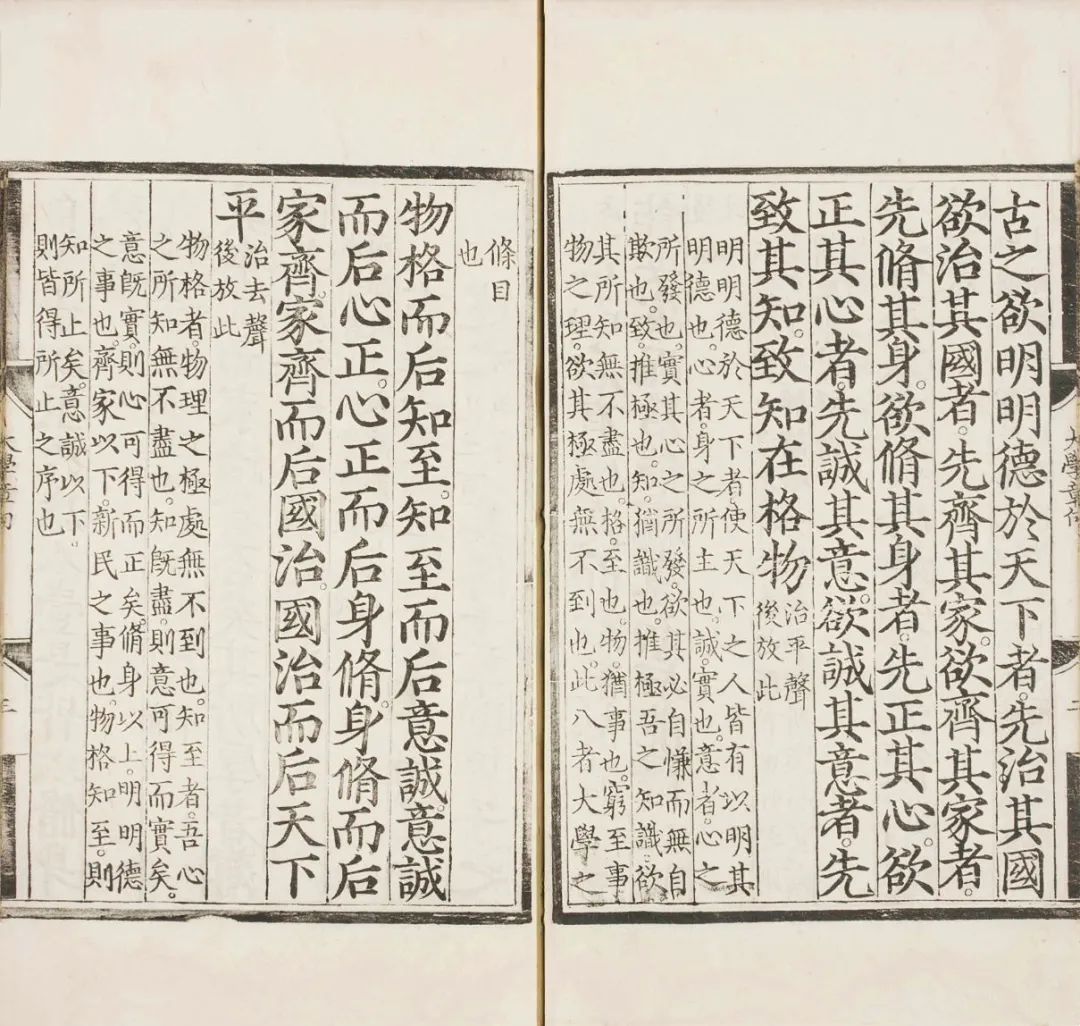 古之欲明明德於天下者。先治其國
欲治其國者。先齊其家。欲齊其家者。
先脩其身。欲脩其身者。先正其心。欲
正其心者。先誠其意。欲誠其意者。先
致其知。致知在格物
治平聲
後放此
明明德於天下者。使天下之人皆有以明其
明德也。心者。身之所主也。誠。實也。意者。心之
所發也。實其心之所發。欲其必自慊而無自
欺也。致。推極也。知。猶識也。推極吾之知識。欲
其所知無不盡也。格。至也。物。猶事也。窮至事
物之理。欲其極處無不到也。此八者大學之
條目
也
物格而后知至。知至而后意誠。意誠
而后心正。心正而后身脩。身脩而后
家齊。家齊而后國治。國治而后天下
平
治去聲
後放此
物格者。物理之極處無不到也。知至者。吾心
之所知無不盡也。知旣盡。則意可得而實矣。
意旣實。則心可得而正矣。脩身以上。明明德
之事也。齊家以下。新民之事也。物格知至。則
知所止矣。意誠以下。
則皆得所止之序也